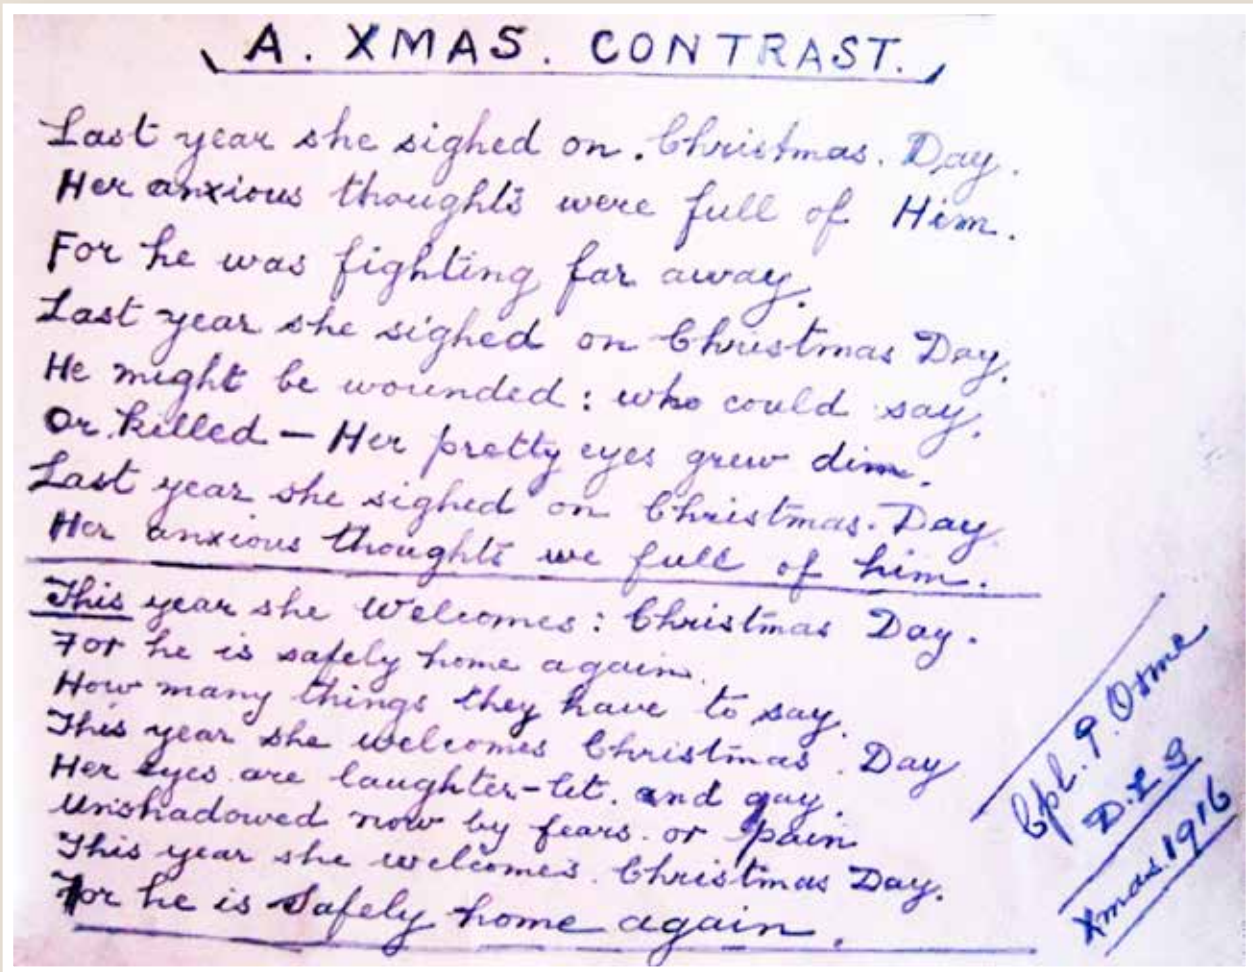 A. XMAS. CONTRAST.
Last year she sighed on. Christmas. Day.
Her anxious thoughts were full of Him.
For he was fighting far away.
Last year she sighed on Christmas Day.
He might be wounded: who could say.
Or. killed — Her pretty eyes grew dim.
Last year she sighed on Christmas. Day.
Her anxious thoughts we full of him.
This year she welcomes: Christmas Day.
For he is safely home again.
How many things they have to say.
This year she welcomes Christmas. Day
Her eyes are laughter-lit. and gay.
Unshadowed now by fears. or pain
This year she welcomes. Christmas Day.
For he is safely home again.
Cpl. P. Osme
D.L.I
Xmas. 1916